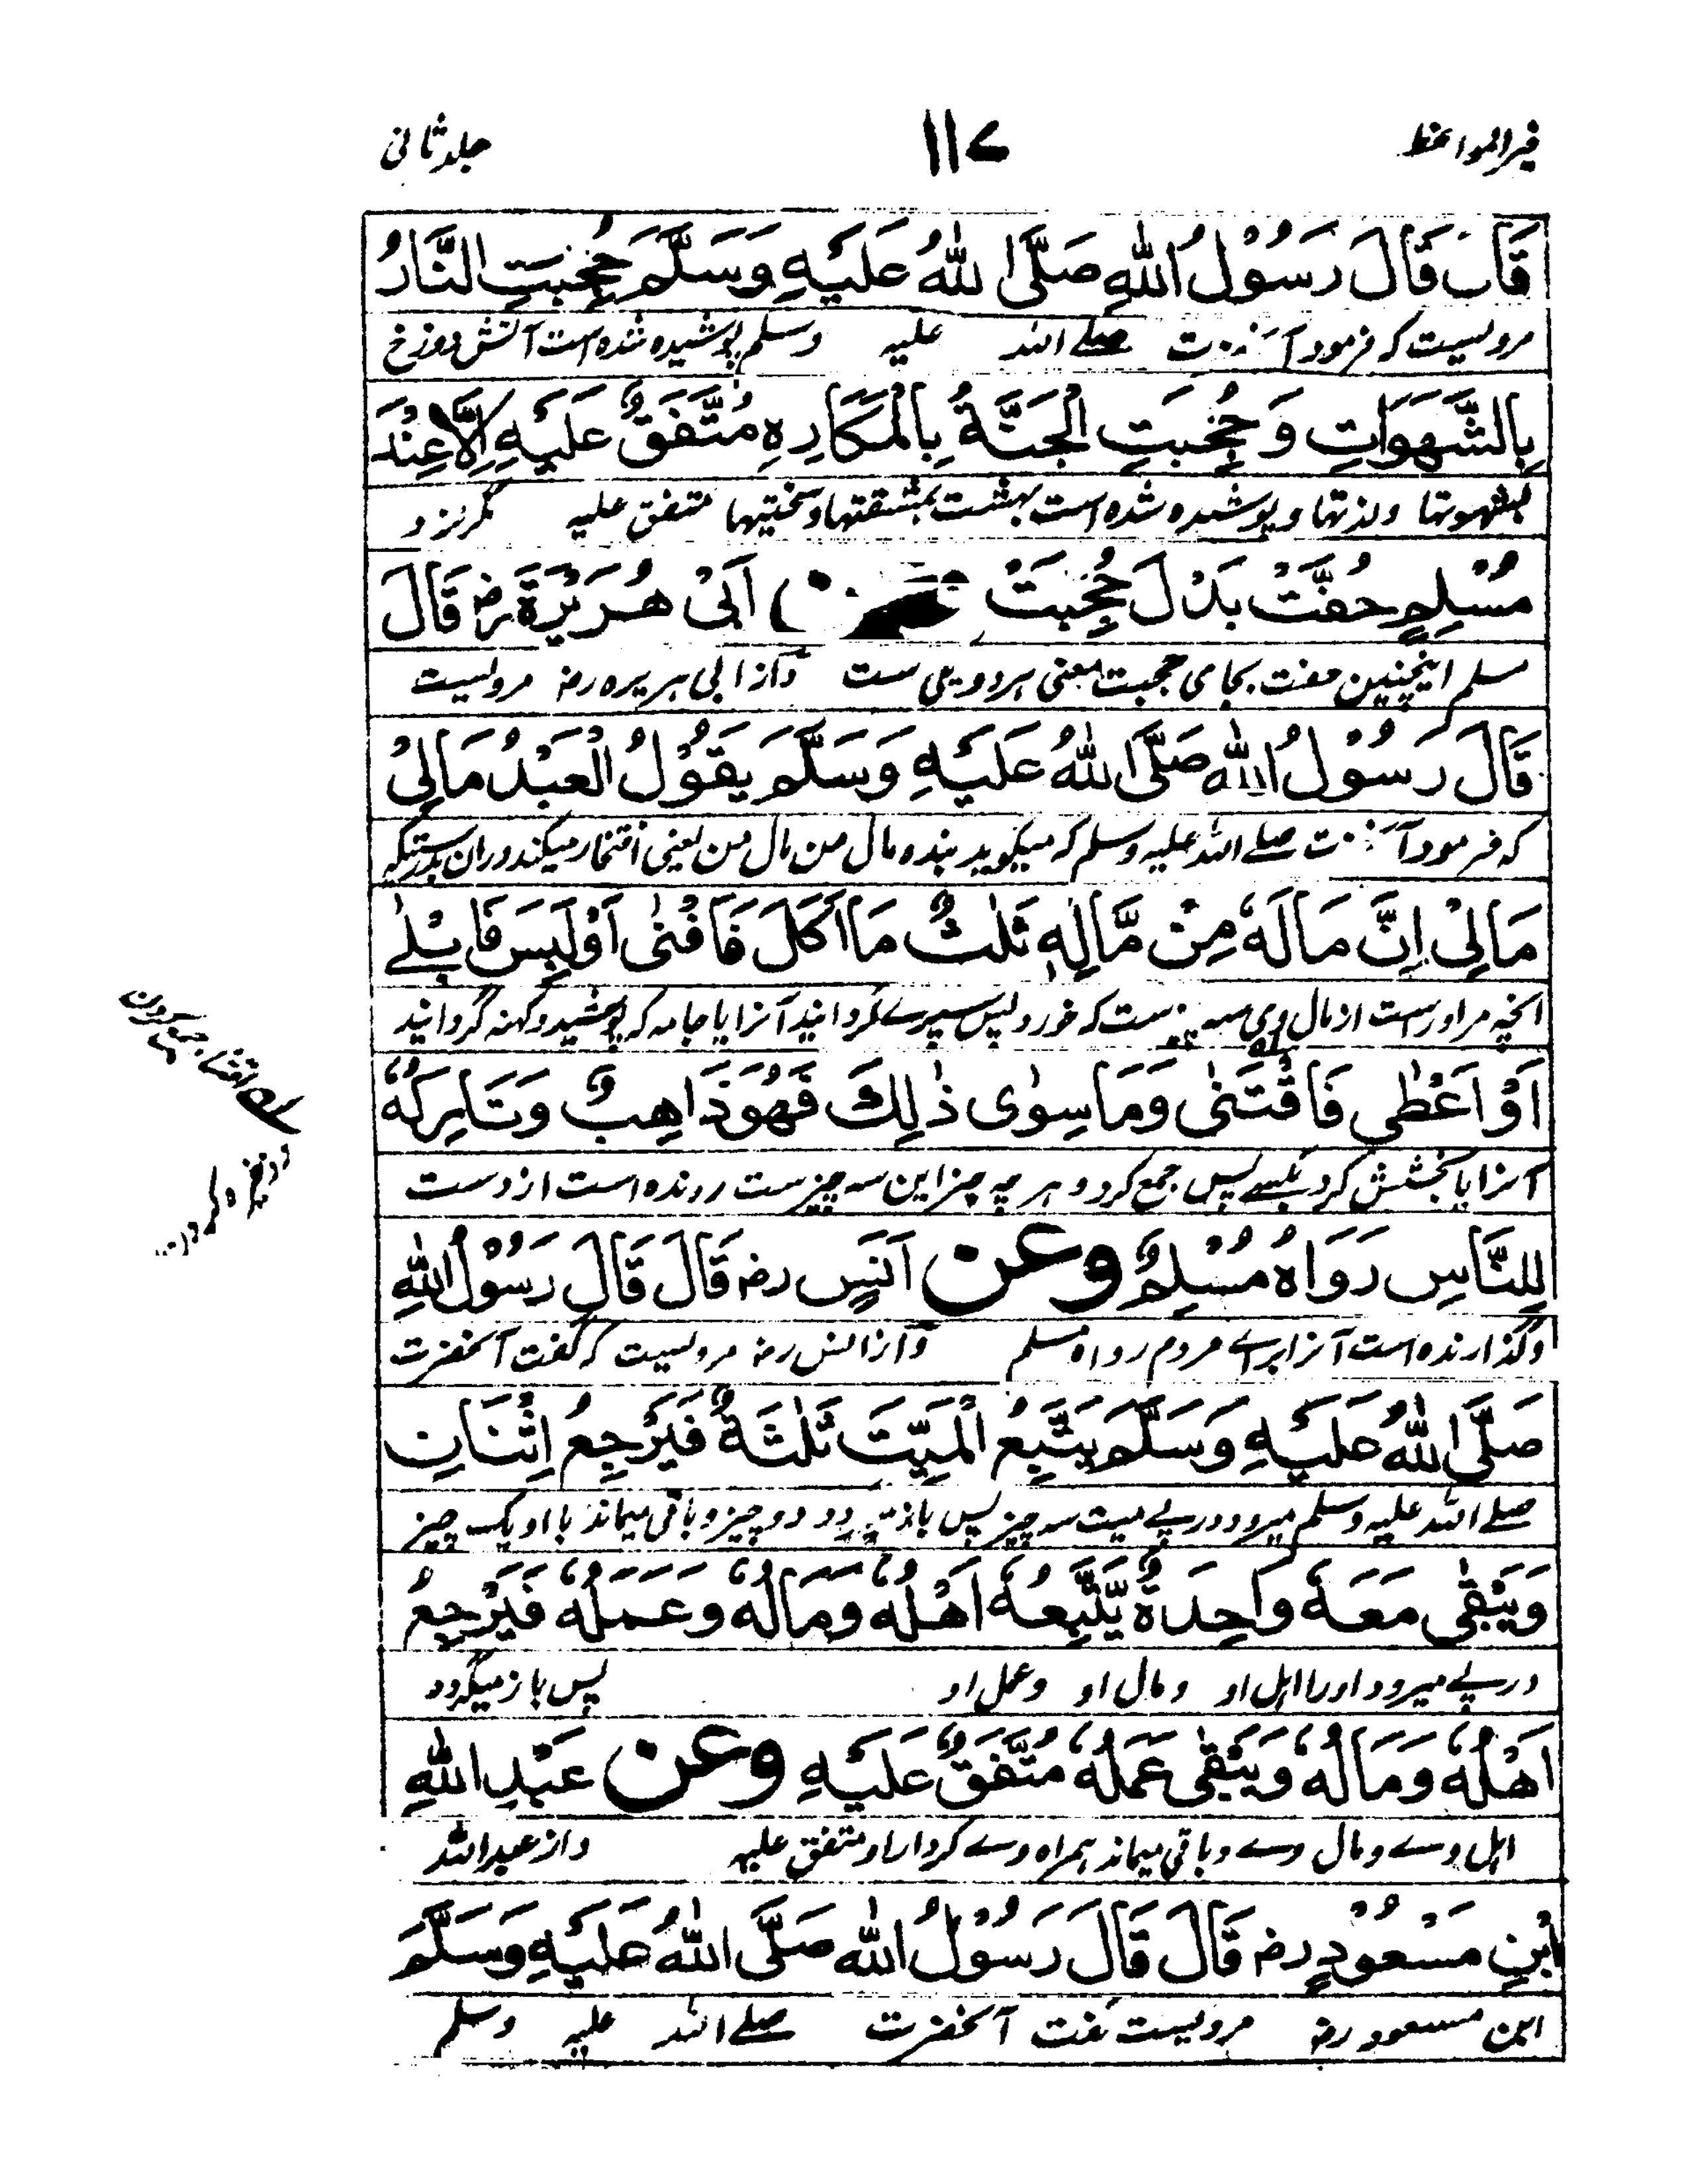 خیر المواعظ ۱۱۷ جلد ثانی
قَالَ قَالَ رَسُوْلُ اللّٰهِ صَلَّى اللّٰهُ عَلَيْهِ وَسَلَّمَ حُجِبَتِ النَّارُ
مرویست که فرمود آنحضرت صلے اللہ علیہ وسلم پوشیده شده است آتش دوزخ
بِالشَّهَوَاتِ وَحُجِبَتِ الْجَنَّةُ بِالْمَكَارِهِ مُتَّفَقٌ عَلَيْهِ اِلَّا عِنْدَ
بشهوتها ولذتها و پوشیده شده است بهشت بمشقتها و سختیها متفق علیہ مگر نزد
مُسْلِمٍ حُفَّتْ بَدَلَ حُجِبَتْ اَبِىْ هُرَيْرَةَ رض قَالَ
مسلم اینچنین حفت بجای حجبت معنی هر دو یکی ست و از ابی هریره رض مرویست
قَالَ رَسُوْلُ اللّٰهِ صَلَّى اللّٰهُ عَلَيْهِ وَسَلَّمَ يَقُوْلُ الْعَبْدُ مَالِىْ
که فرمود آنحضرت صلے اللہ علیہ وسلم که میگوید بنده مال من مال من یعنی افتخار میکند و ران بدرستیکه
مَالِىْ اِنَّ مَالَهٗ مِنْ مَّالِهٖ ثَلٰثٌ مَا اَكَلَ فَاَفْنٰى اَوْ لَبِسَ فَاَبْلٰے
انچه مر اور است از مال وی سه چیزست که خورد پس سپرے گردانید آنرا یا جامه که پوشید و کهنه گردانید
اَوْ اَعْطٰى فَاقْتَنٰى وَمَا سِوٰى ذٰلِكَ فَهُوَ ذَاهِبٌ وَتَارِكُهٗ
آنرا یا بخشش کرد بکسے پس جمع کرد و هر چه جز این سه چیزست رونده است از دست
لِلنَّاسِ رَوَاهُ مُسْلِمٌ وعن اَنَسٍ رض قَالَ قَالَ رَسُوْلُ اللّٰهِ
وگذارنده است آنرا براے مردم رواه مسلم و از انس رض مرویست که گفت آنحضرت
صَلَّى اللّٰهُ عَلَيْهِ وَسَلَّمَ يَتْبَعُ الْمَيِّتَ ثَلٰثَةٌ فَيَرْجِعُ اِثْنَانِ
صلے اللہ علیہ وسلم میرود در پے میت سه چیز پس باز میگردد دو چیز و باقی میماند با او یک چیز
وَيَبْقٰى مَعَهٗ وَاحِدَةٌ يَّتْبَعُهٗ اَهْلُهٗ وَمَالُهٗ وَعَمَلُهٗ فَيَرْجِعُ
در پے میرود اورا اهل او و مال او و عمل او پس باز میگردد
اَهْلُهٗ وَمَالُهٗ وَيَبْقٰى عَمَلُهٗ مُتَّفَقٌ عَلَيْهِ وعن عَبْدِ اللّٰهِ
اهل وے و مال وے و باقی میماند همراه وے کردار او متفق علیہ و از عبد اللہ
ابْنِ مَسْعُوْدٍ رض قَالَ قَالَ رَسُوْلُ اللّٰهِ صَلَّى اللّٰهُ عَلَيْهِ وَسَلَّمَ
ابن مسعود رض مرویست گفت آنحضرت صلے اللہ علیہ وسلم